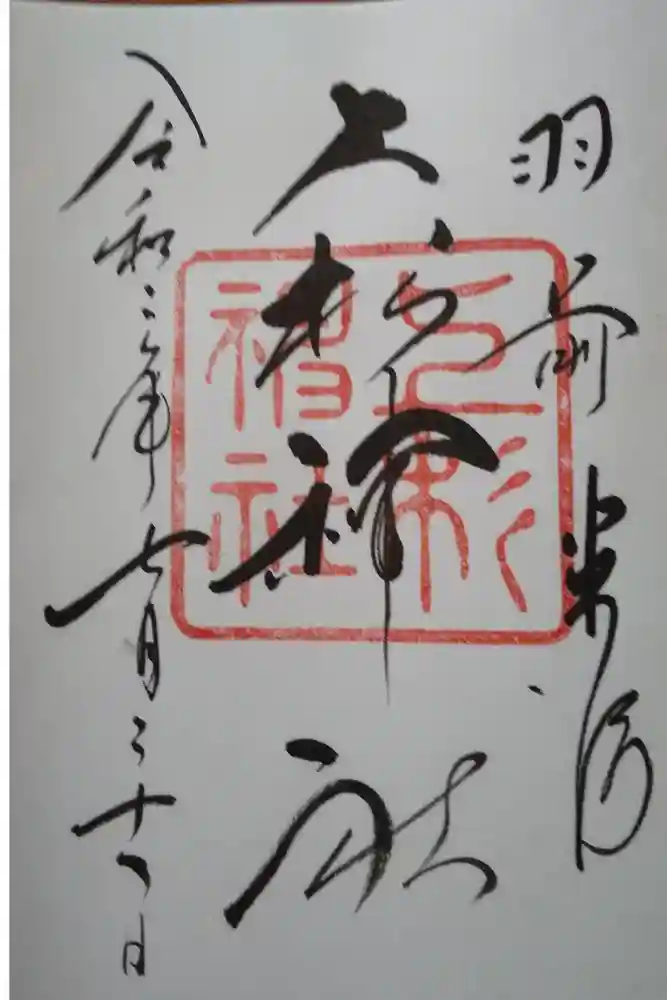 羽前米沢
上杉神社
令和三年七月二十八日
上杉
神社